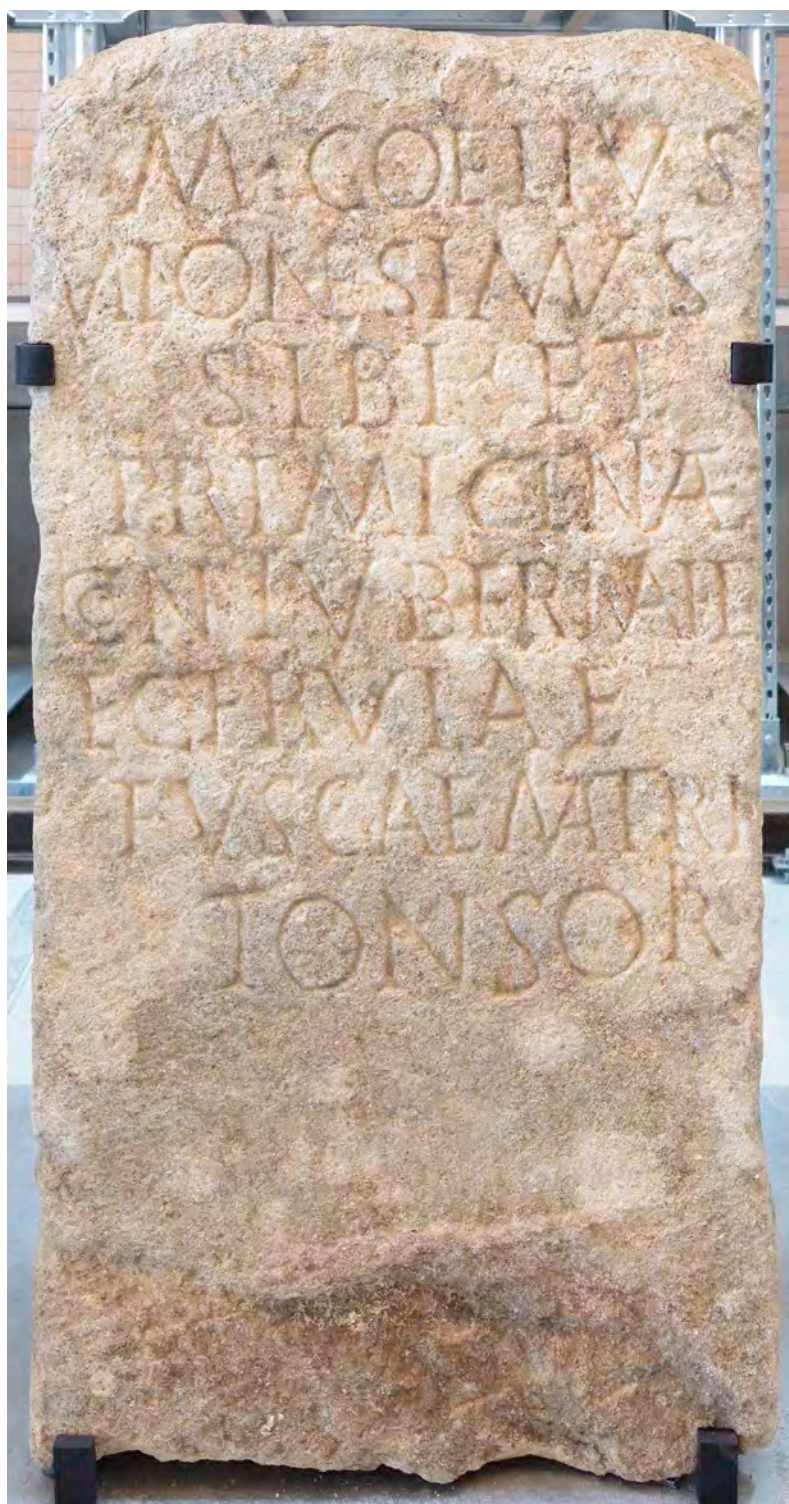 M·COELIVS
ONESIMVS
SIBI·ET
PRIMIGENAE
CONTVBERNALI

FVSCAE MATRI
TONSOR